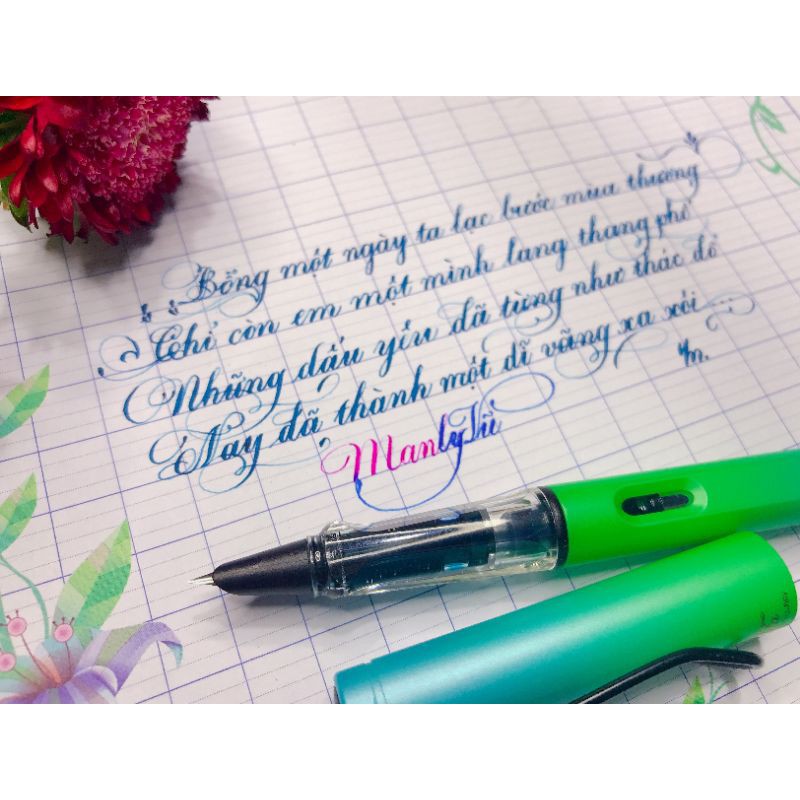 Bỗng một ngày ta lạc bước mùa thương
Chỉ còn em một mình lang thang phố
Những dấu yêu đã từng như thác đổ
Nay đã thành một dĩ vãng xa xôi...
Manly Lữ